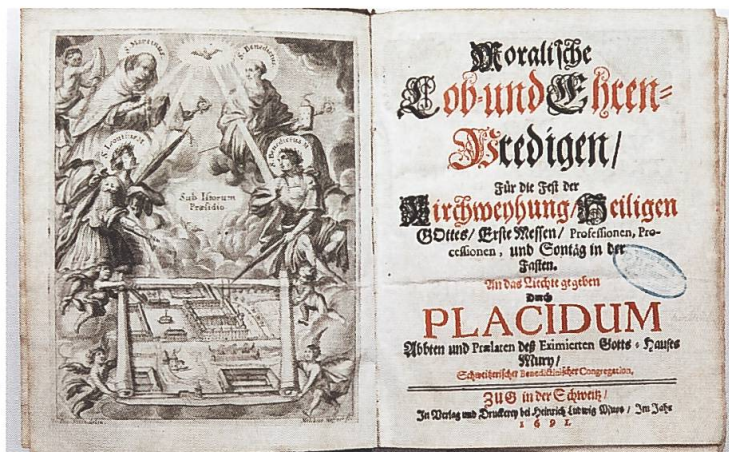 S. Martinus
S. Benedictus
S. Leontius M.
S. Benedictus M.
Sub Istorum
Præsidio
Moralische
Lob-und Ehren-
Predigen/
Für die Fest der
Kirchweyhung/Heiligen
GOttes/ Erste Messen/ Professionen, Pro-
cessionen, und Sontäg in der
Fasten.
An das Liechte gegeben
Durch
PLACIDUM
Abbten und Prælaten deß Eximierten Gotts-Hauses
Mury/
Schweitzerischer Benedictinischer Congregation,
ZUG in der Schweitz/
In Verlag und Druckerey bei Heinrich Ludwig Muos/ Im Jahr
1691.